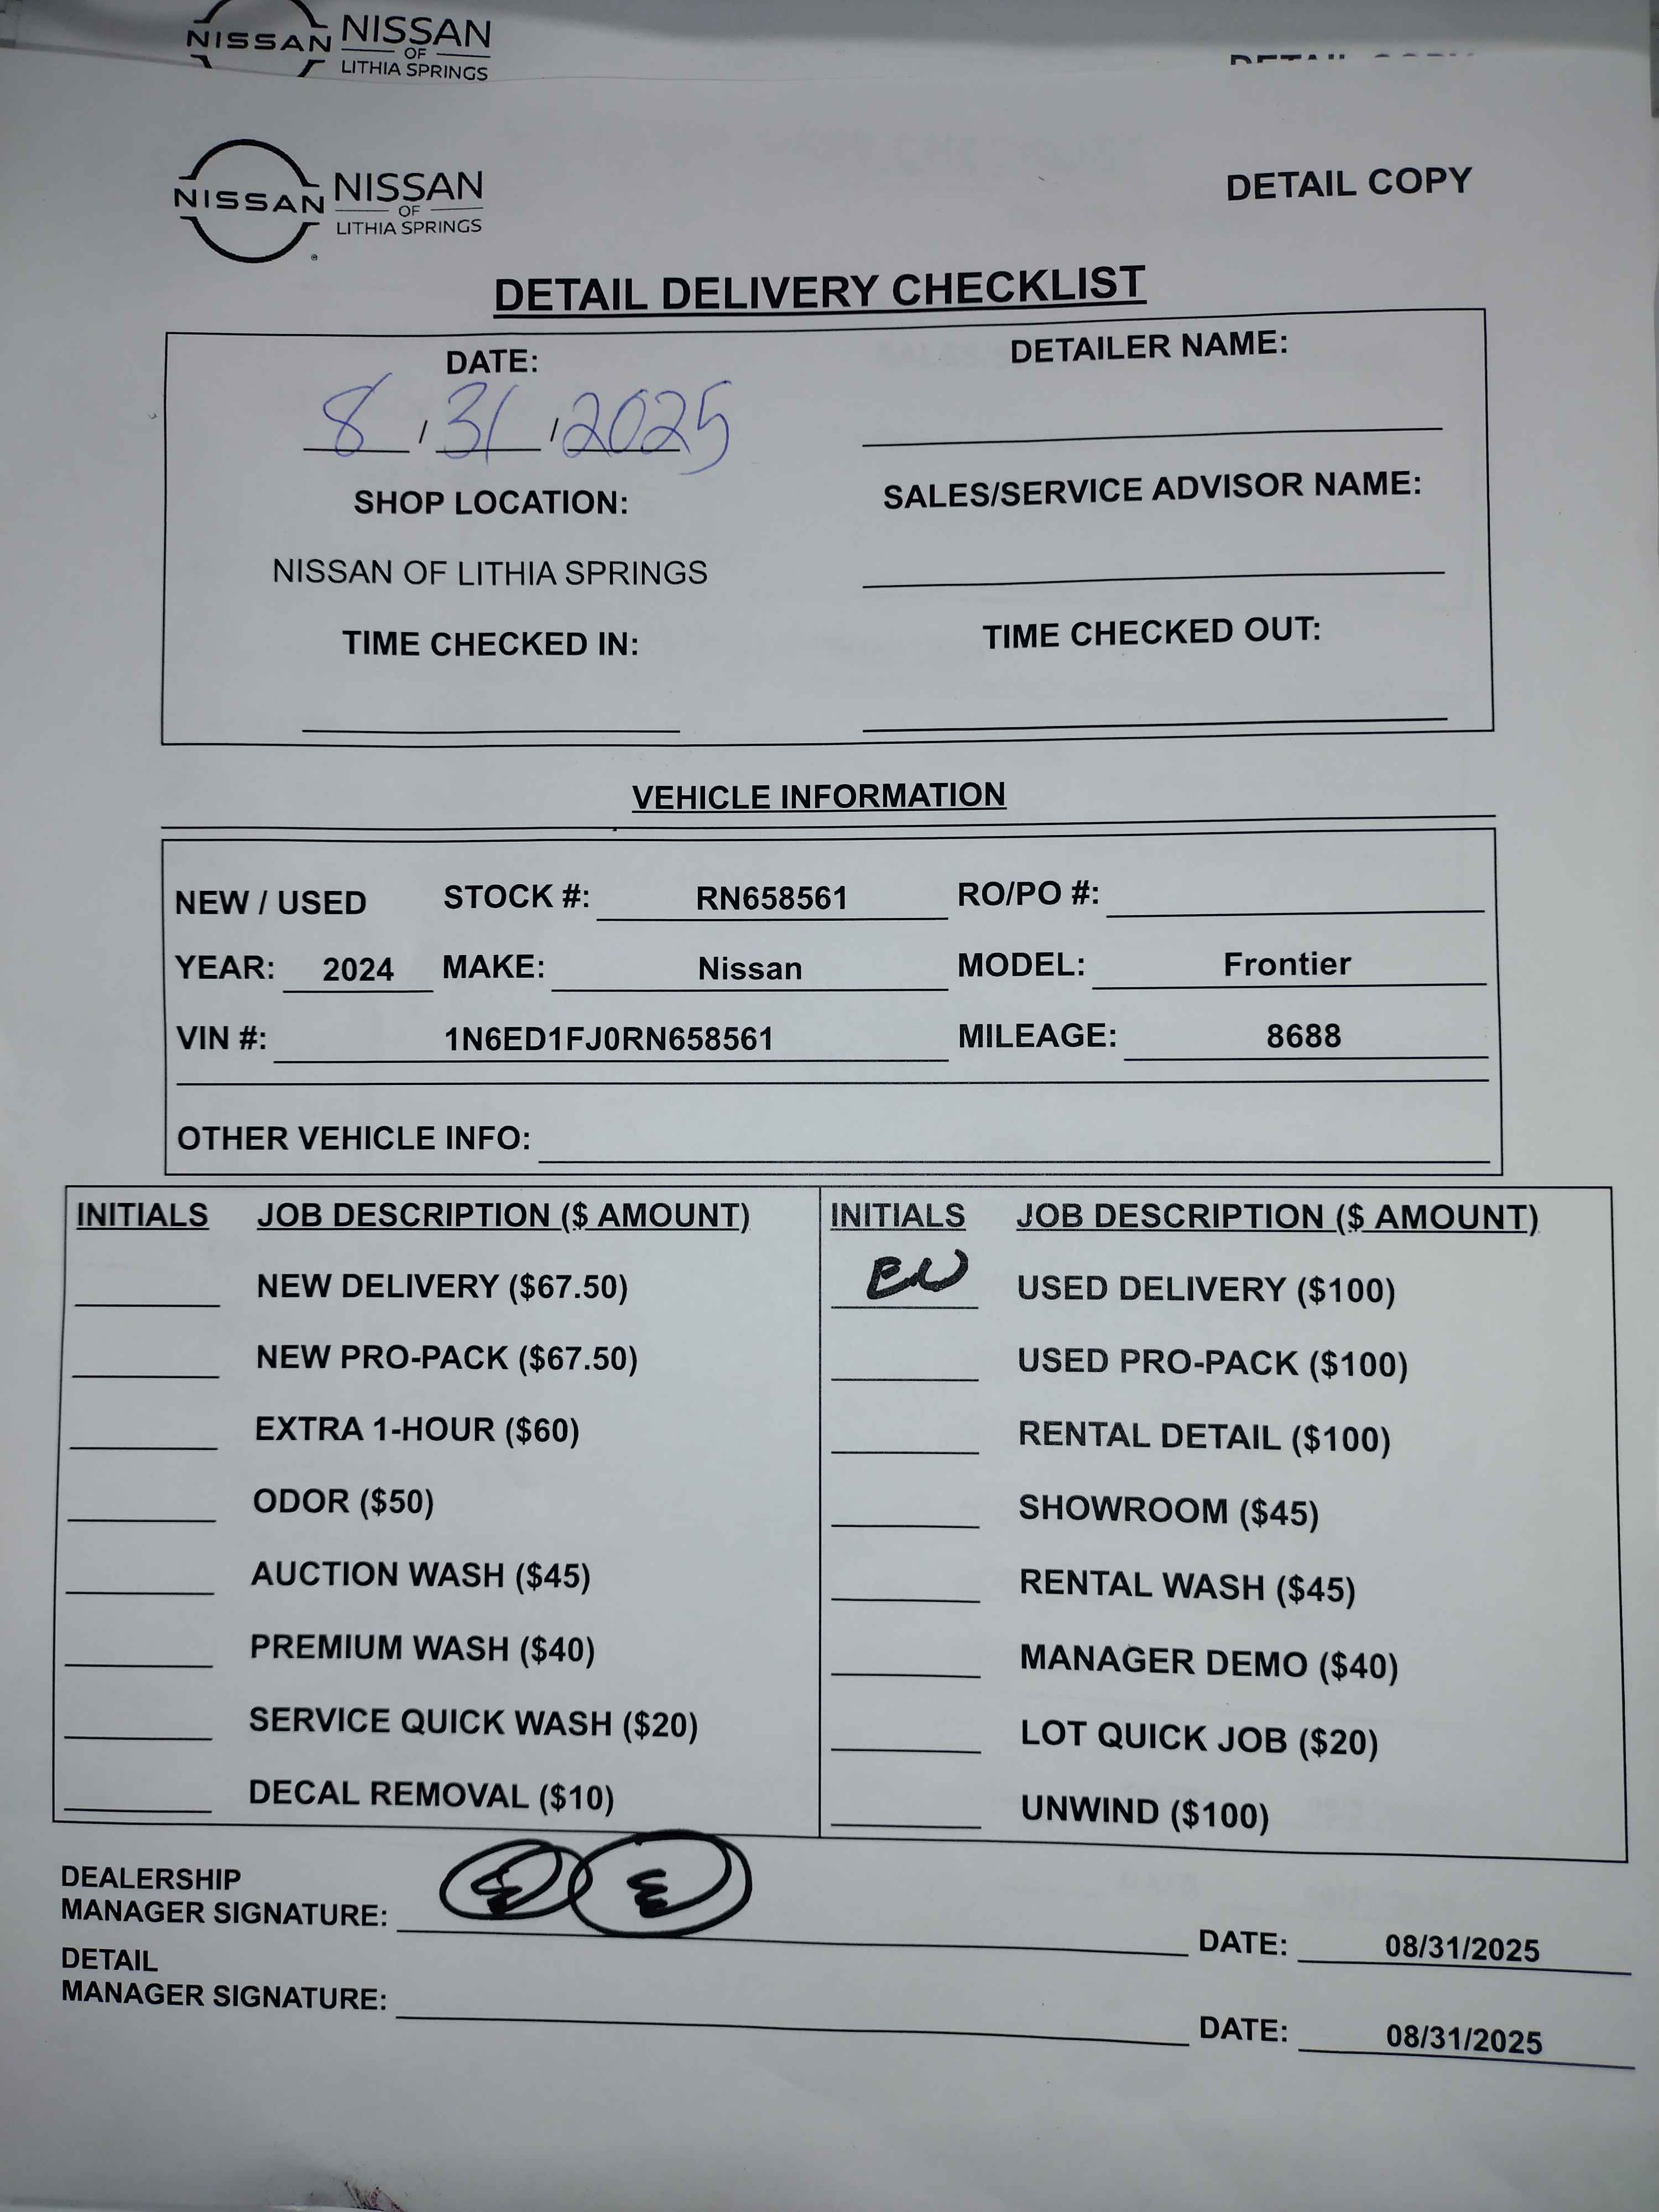 NISSAN NISSAN
OF
LITHIA SPRINGS
NISSAN NISSAN
OF
LITHIA SPRINGS
DETAIL COPY
DETAIL DELIVERY CHECKLIST
DATE: DETAILER NAME:
8 / 31 / 2025
SHOP LOCATION: SALES/SERVICE ADVISOR NAME:
NISSAN OF LITHIA SPRINGS
TIME CHECKED IN: TIME CHECKED OUT:
VEHICLE INFORMATION
NEW / USED STOCK #: RN658561 RO/PO #:
YEAR: 2024 MAKE: Nissan MODEL: Frontier
VIN #: 1N6ED1FJ0RN658561 MILEAGE: 8688
OTHER VEHICLE INFO:
INITIALS JOB DESCRIPTION ($ AMOUNT) INITIALS JOB DESCRIPTION ($ AMOUNT)
NEW DELIVERY ($67.50) USED DELIVERY ($100)
NEW PRO-PACK ($67.50) USED PRO-PACK ($100)
EXTRA 1-HOUR ($60) RENTAL DETAIL ($100)
ODOR ($50) SHOWROOM ($45)
AUCTION WASH ($45) RENTAL WASH ($45)
PREMIUM WASH ($40) MANAGER DEMO ($40)
SERVICE QUICK WASH ($20) LOT QUICK JOB ($20)
DECAL REMOVAL ($10) UNWIND ($100)
DEALERSHIP
MANAGER SIGNATURE: DATE: 08/31/2025
DETAIL
MANAGER SIGNATURE: DATE: 08/31/2025